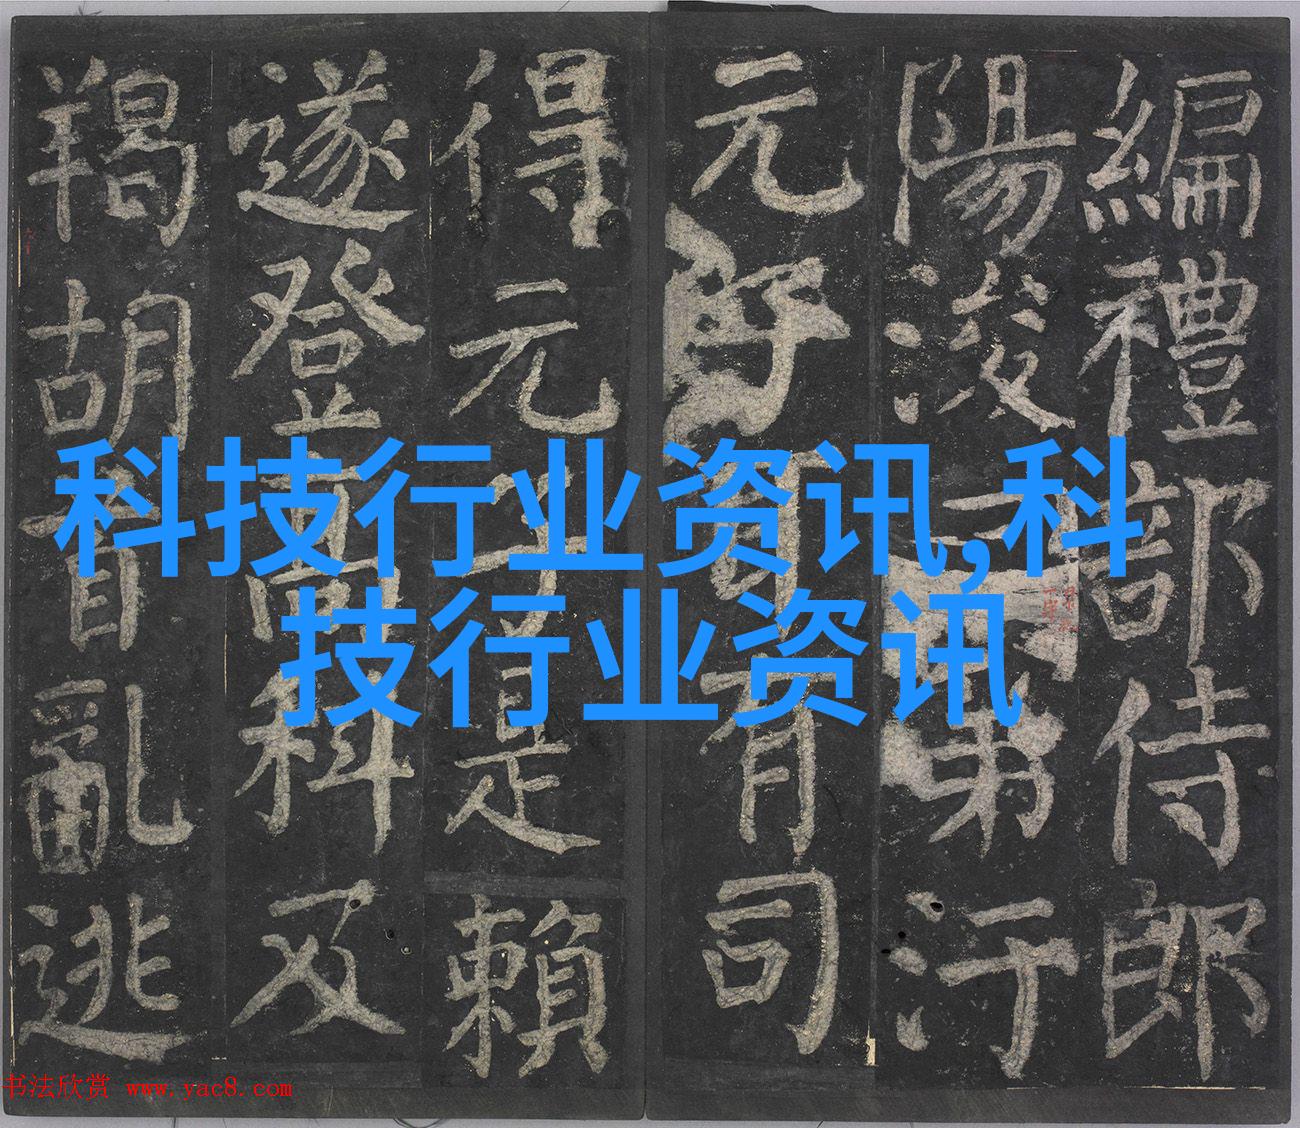 編禮部侍郎
陽浚第汙
元有司
得元子是賴
遂登高科及
羯胡首亂逃
科技行业资讯,科
技行业资讯
书法欣赏 www.yac8.com